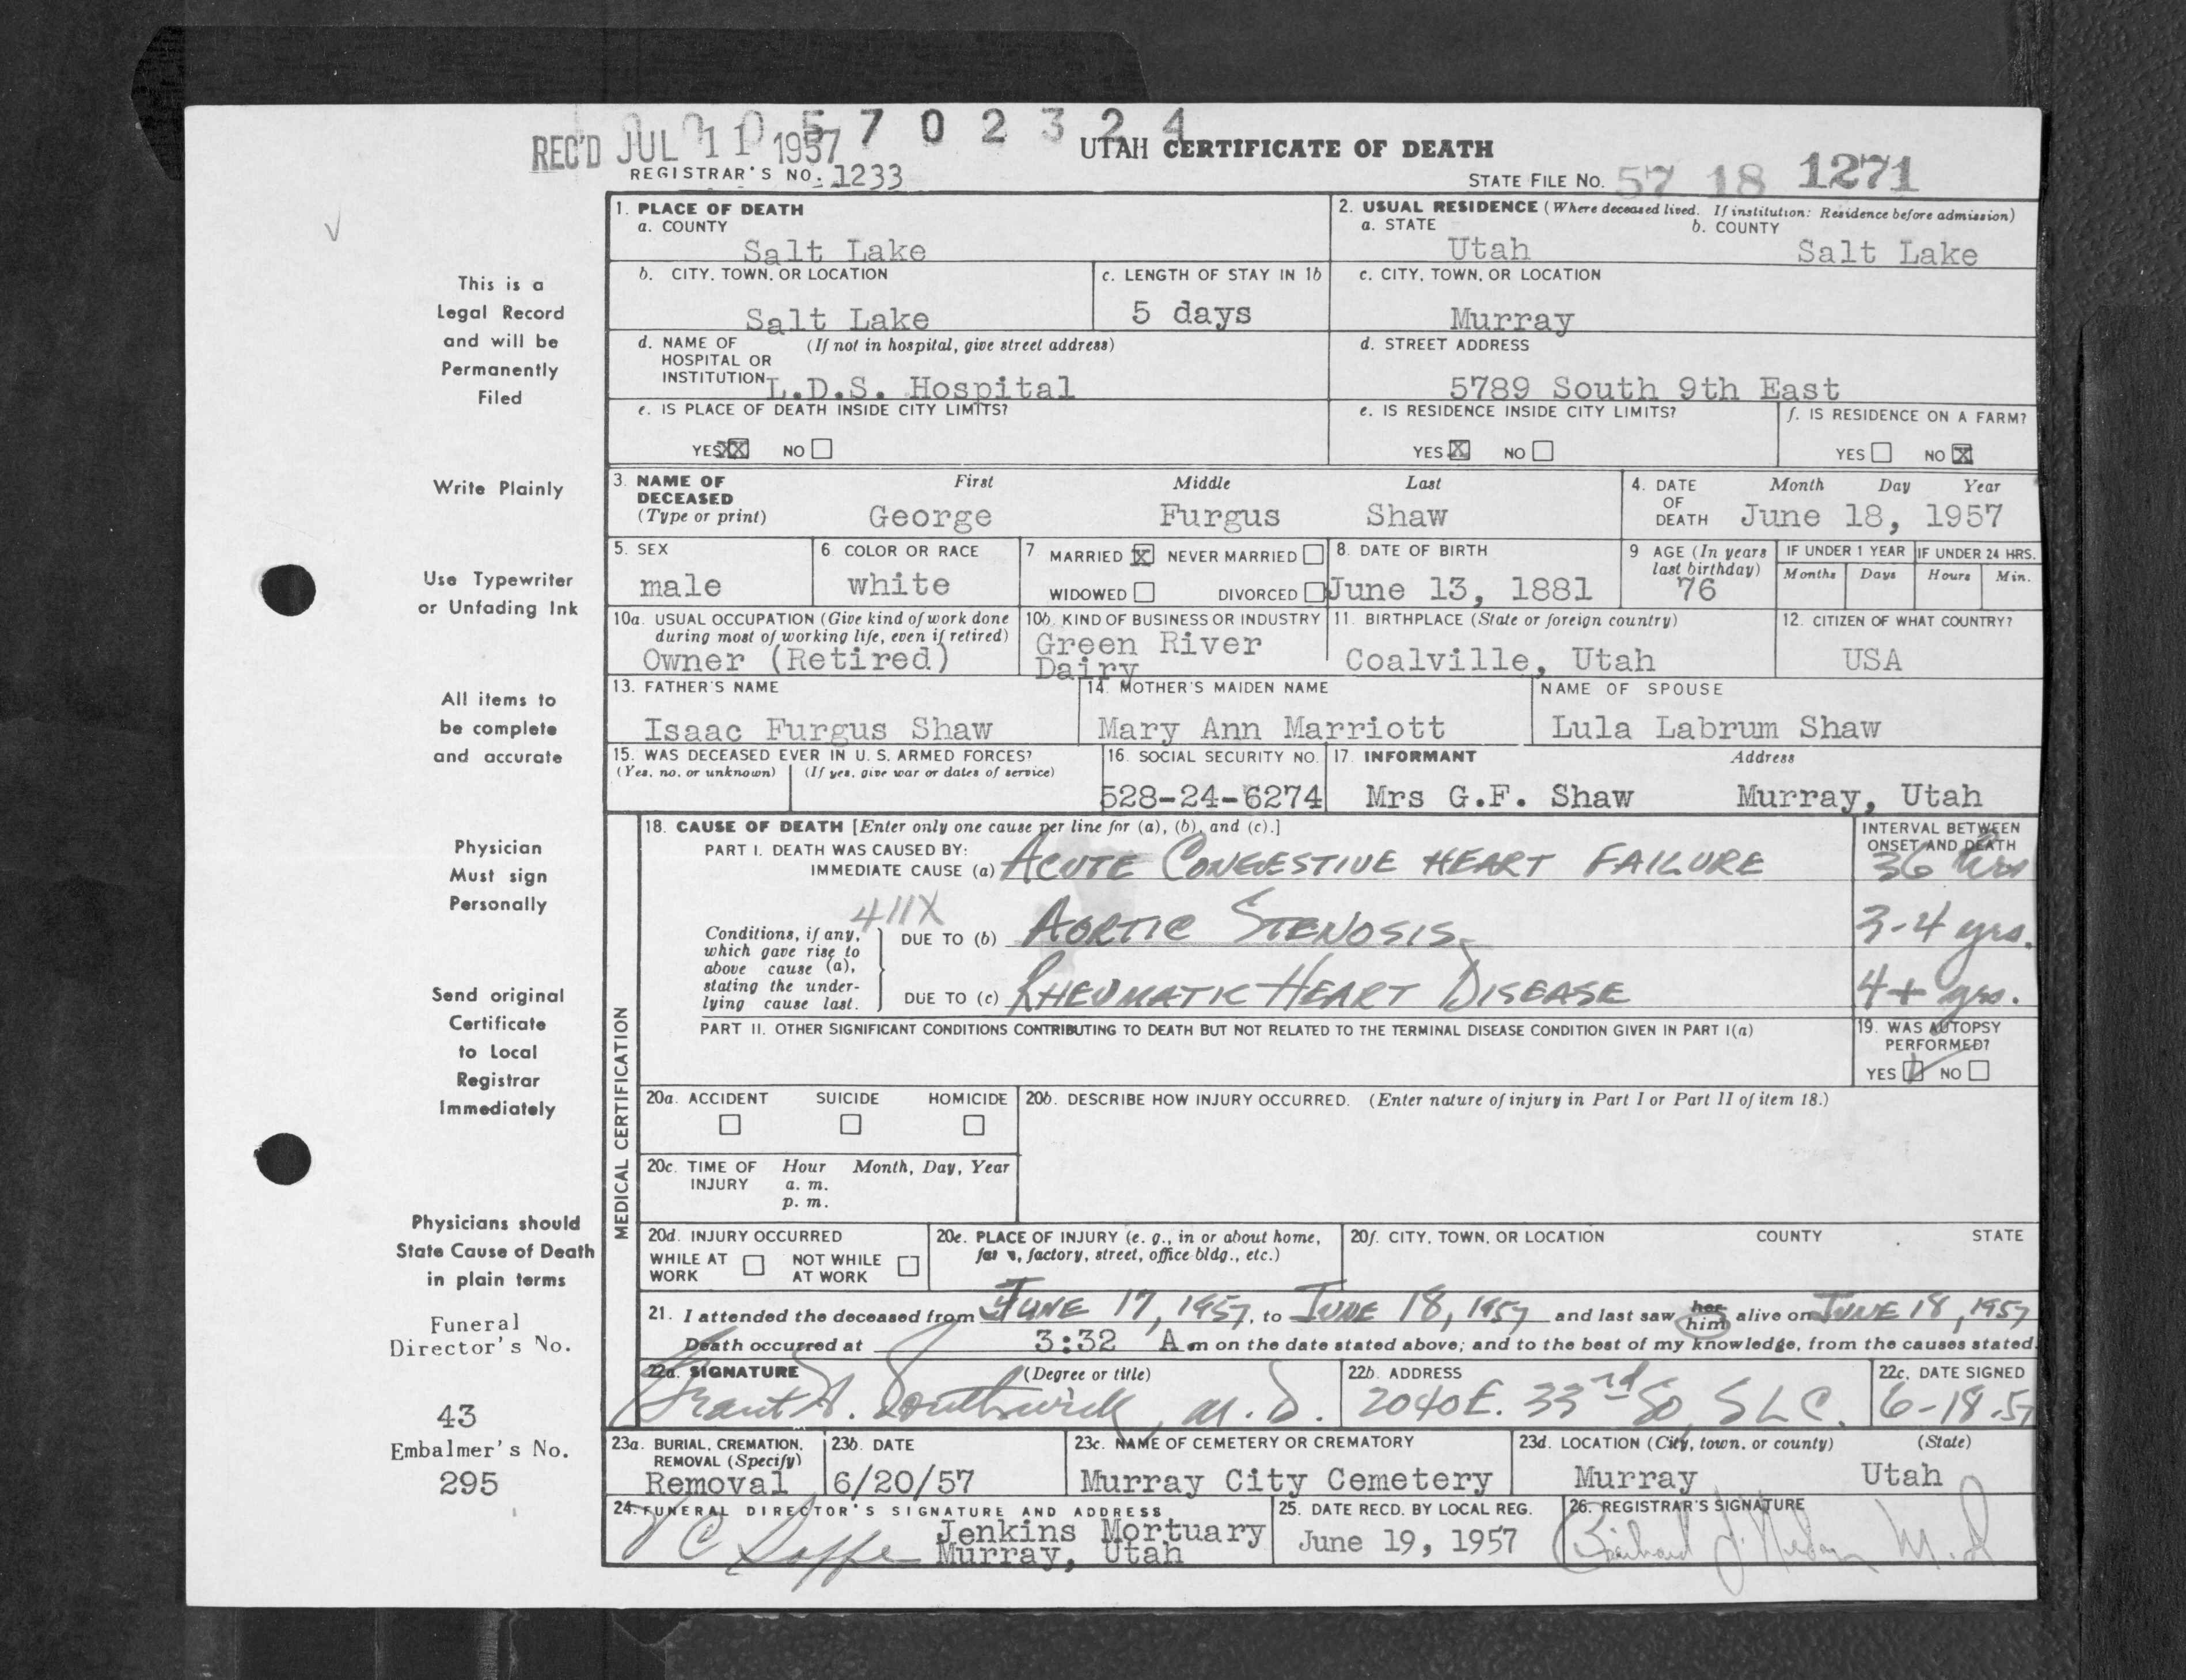 0005702324
REC'D JUL 11 1957
UTAH CERTIFICATE OF DEATH
REGISTRAR'S NO. 1233
STATE FILE NO. 57 18 1271
This is a
Legal Record
and will be
Permanently
Filed
Write Plainly
Use Typewriter
or Unfading Ink
All items to
be complete
and accurate
Physician
Must sign
Personally
Send original
Certificate
to Local
Registrar
Immediately
Physicians should
State Cause of Death
in plain terms
Funeral
Director's No.
43
Embalmer's No.
295
1. PLACE OF DEATH
a. COUNTY
Salt Lake
2. USUAL RESIDENCE (Where deceased lived. If institution: Residence before admission)
a. STATE b. COUNTY
Utah Salt Lake
b. CITY, TOWN, OR LOCATION
Salt Lake
c. LENGTH OF STAY IN 1b
5 days
c. CITY, TOWN, OR LOCATION
Murray
d. NAME OF (If not in hospital, give street address)
HOSPITAL OR
INSTITUTION L.D.S. Hospital
d. STREET ADDRESS
5789 South 9th East
e. IS PLACE OF DEATH INSIDE CITY LIMITS?
YES XX NO
e. IS RESIDENCE INSIDE CITY LIMITS?
YES X NO
f. IS RESIDENCE ON A FARM?
YES NO X
3. NAME OF First Middle Last
DECEASED
(Type or print) George Furgus Shaw
4. DATE Month Day Year
OF
DEATH June 18, 1957
5. SEX
male
6. COLOR OR RACE
white
7 MARRIED X NEVER MARRIED
WIDOWED DIVORCED
8. DATE OF BIRTH
June 13, 1881
9 AGE (In years
last birthday)
76
IF UNDER 1 YEAR IF UNDER 24 HRS.
Months Days Hours Min.
10a. USUAL OCCUPATION (Give kind of work done
during most of working life, even if retired)
Owner (Retired)
10b. KIND OF BUSINESS OR INDUSTRY
Green River
Dairy
11. BIRTHPLACE (State or foreign country)
Coalville, Utah
12. CITIZEN OF WHAT COUNTRY?
USA
13. FATHER'S NAME
Isaac Furgus Shaw
14. MOTHER'S MAIDEN NAME
Mary Ann Marriott
NAME OF SPOUSE
Lula Labrum Shaw
15. WAS DECEASED EVER IN U. S. ARMED FORCES?
(Yes, no, or unknown) (If yes, give war or dates of service)
16. SOCIAL SECURITY NO.
528-24-6274
17. INFORMANT Address
Mrs G.F. Shaw Murray, Utah
MEDICAL CERTIFICATION
18. CAUSE OF DEATH [Enter only one cause per line for (a), (b), and (c).]
PART I. DEATH WAS CAUSED BY:
IMMEDIATE CAUSE (a) ACUTE CONGESTIVE HEART FAILURE
INTERVAL BETWEEN
ONSET AND DEATH
36 hrs
411X
Conditions, if any,
which gave rise to
above cause (a),
stating the under-
lying cause last.
DUE TO (b) AORTIC STENOSIS
3-4 yrs.
DUE TO (c) RHEUMATIC HEART DISEASE
4+ yrs.
PART II. OTHER SIGNIFICANT CONDITIONS CONTRIBUTING TO DEATH BUT NOT RELATED TO THE TERMINAL DISEASE CONDITION GIVEN IN PART I(a)
19. WAS AUTOPSY
PERFORMED?
YES NO
20a. ACCIDENT SUICIDE HOMICIDE
20b. DESCRIBE HOW INJURY OCCURRED. (Enter nature of injury in Part I or Part II of item 18.)
20c. TIME OF Hour Month, Day, Year
INJURY a. m.
p. m.
20d. INJURY OCCURRED
WHILE AT NOT WHILE
WORK AT WORK
20e. PLACE OF INJURY (e. g., in or about home,
farm, factory, street, office bldg., etc.)
20f. CITY, TOWN, OR LOCATION COUNTY STATE
21. I attended the deceased from JUNE 17, 1957, to JUNE 18, 1957 and last saw her him alive on JUNE 18, 1957
Death occurred at 3:32 A m on the date stated above; and to the best of my knowledge, from the causes stated.
22a. SIGNATURE (Degree or title)
Grant A. Southwick, M.D.
22b. ADDRESS
2040 E. 33rd So SLC.
22c. DATE SIGNED
6-18-57
23a. BURIAL, CREMATION,
REMOVAL (Specify)
Removal
23b. DATE
6/20/57
23c. NAME OF CEMETERY OR CREMATORY
Murray City Cemetery
23d. LOCATION (City, town, or county) (State)
Murray Utah
24. FUNERAL DIRECTOR'S SIGNATURE AND ADDRESS
Jenkins Mortuary
Murray, Utah
25. DATE RECD. BY LOCAL REG.
June 19, 1957
26. REGISTRAR'S SIGNATURE
M.D